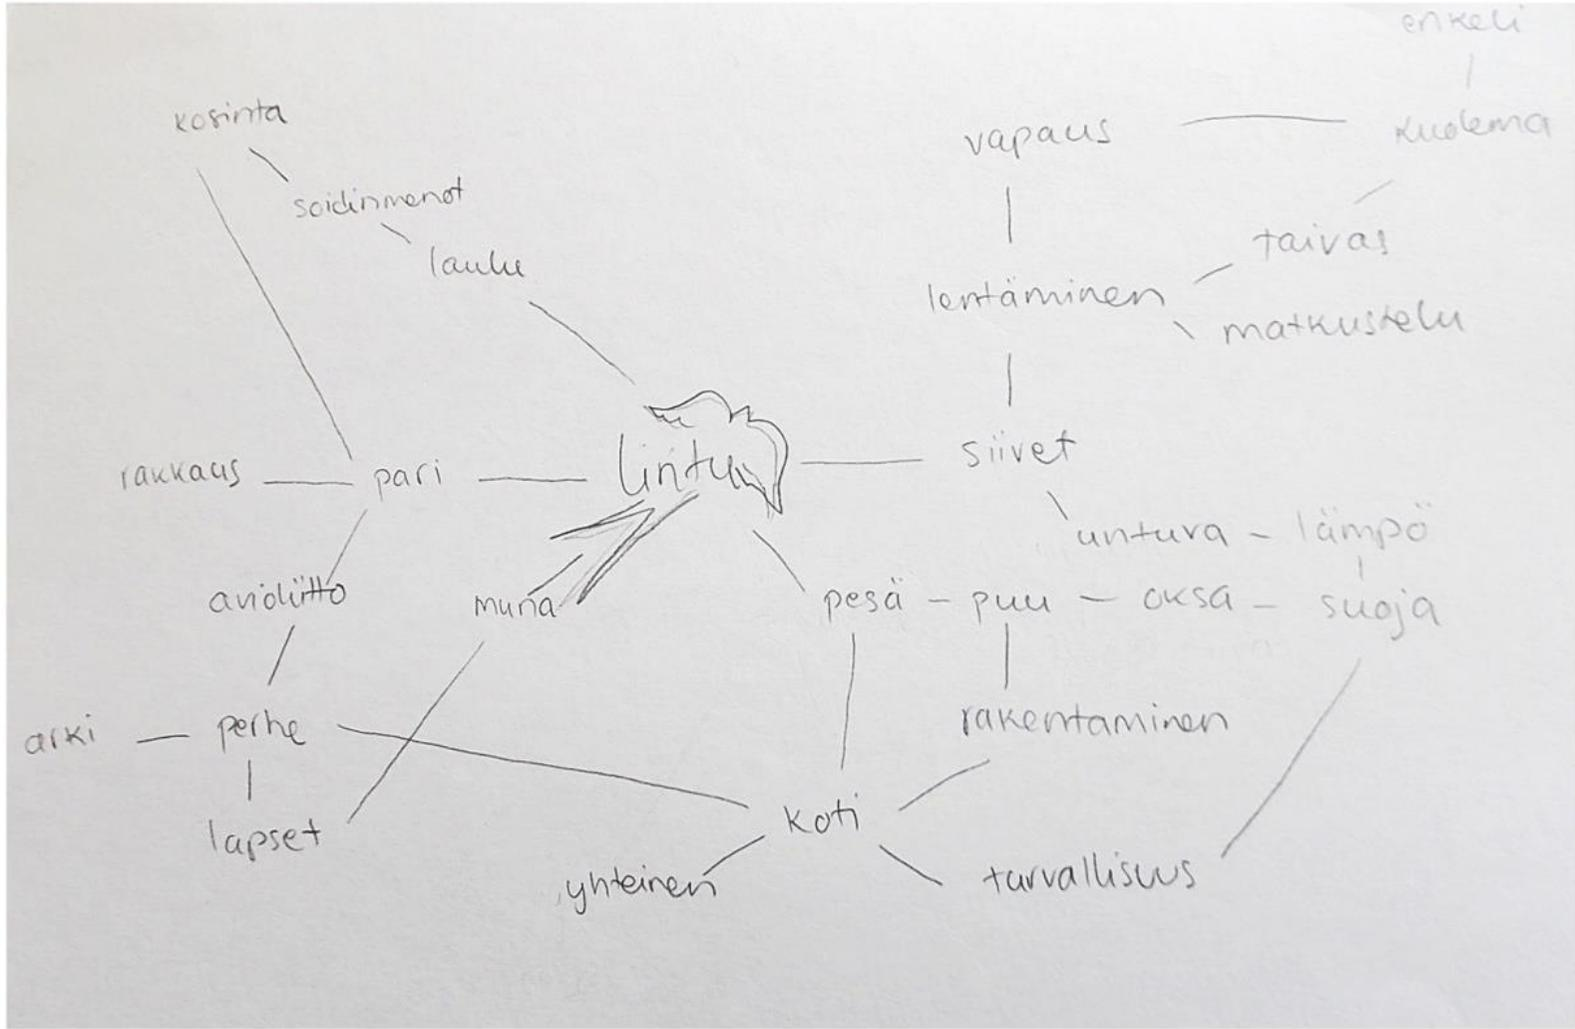 enkeli
kosinta
vapaus
kuolema
soidinmenot
taivas
laulu
lentäminen
matkustelu
rakkaus
pari
lintu
siivet
untuva - lämpö
avioliitto
muna
pesä - puu - oksa - suoja
arki - perhe
rakentaminen
lapset
koti
yhteinen
turvallisuus